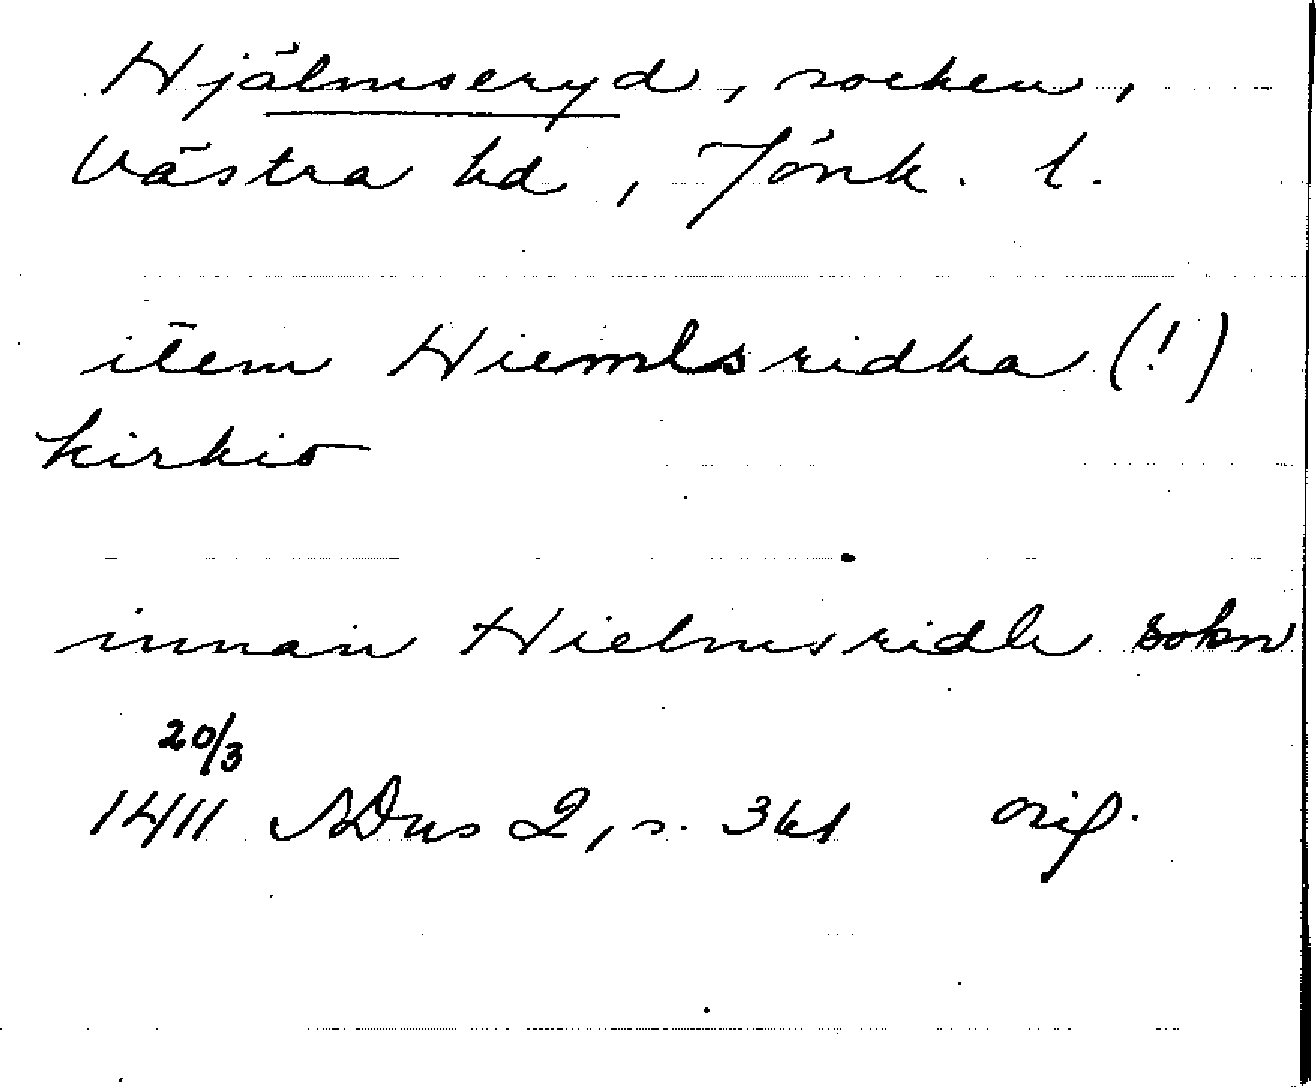 Hjälmseryd, socken,
Västra hd, Jönk. l.
item Hiemlsridha (!)
kirkio
innan Hielmsridh sokn
20/3
1411 SDns 2, s. 361 orig.